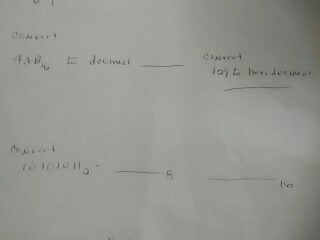 convert
4AB16 to decimal ____
convert
129 to hexadecimal
____
convert
10101011₂ = ____ 8 ____ 16